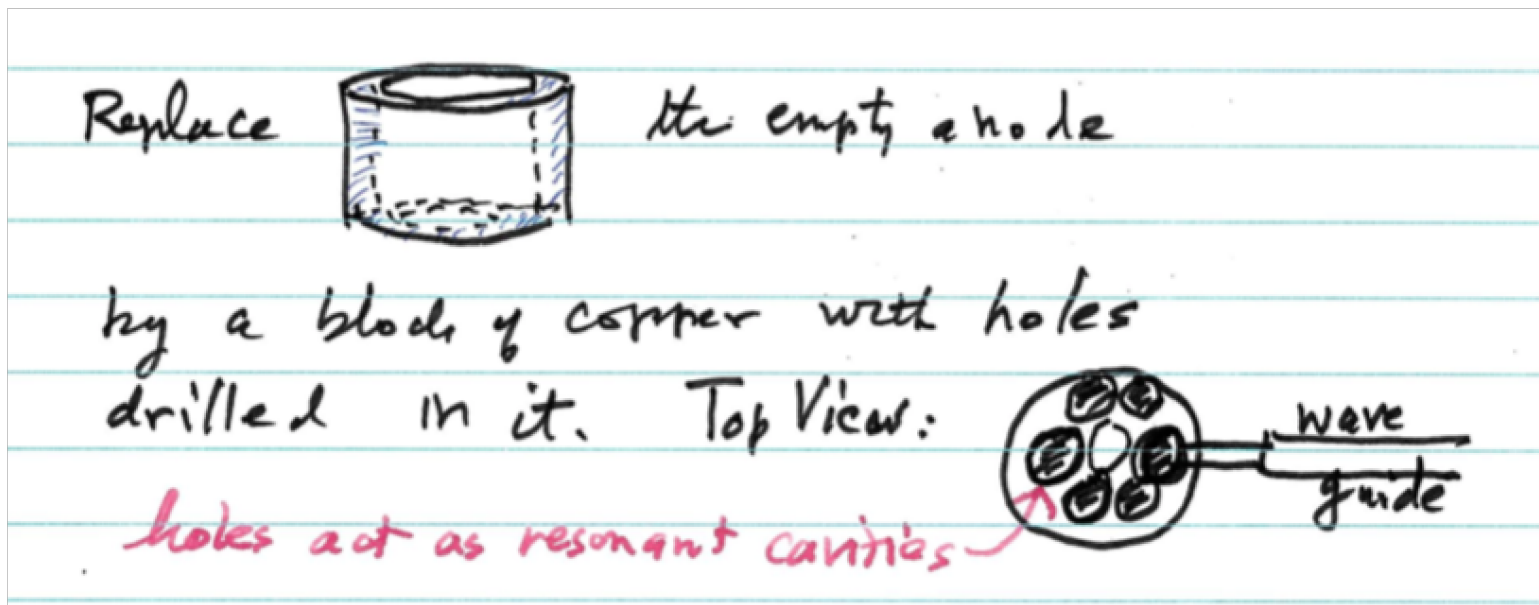 Replace the empty anode
by a block of copper with holes
drilled in it. Top View:
wave
guide
holes act as resonant cavities